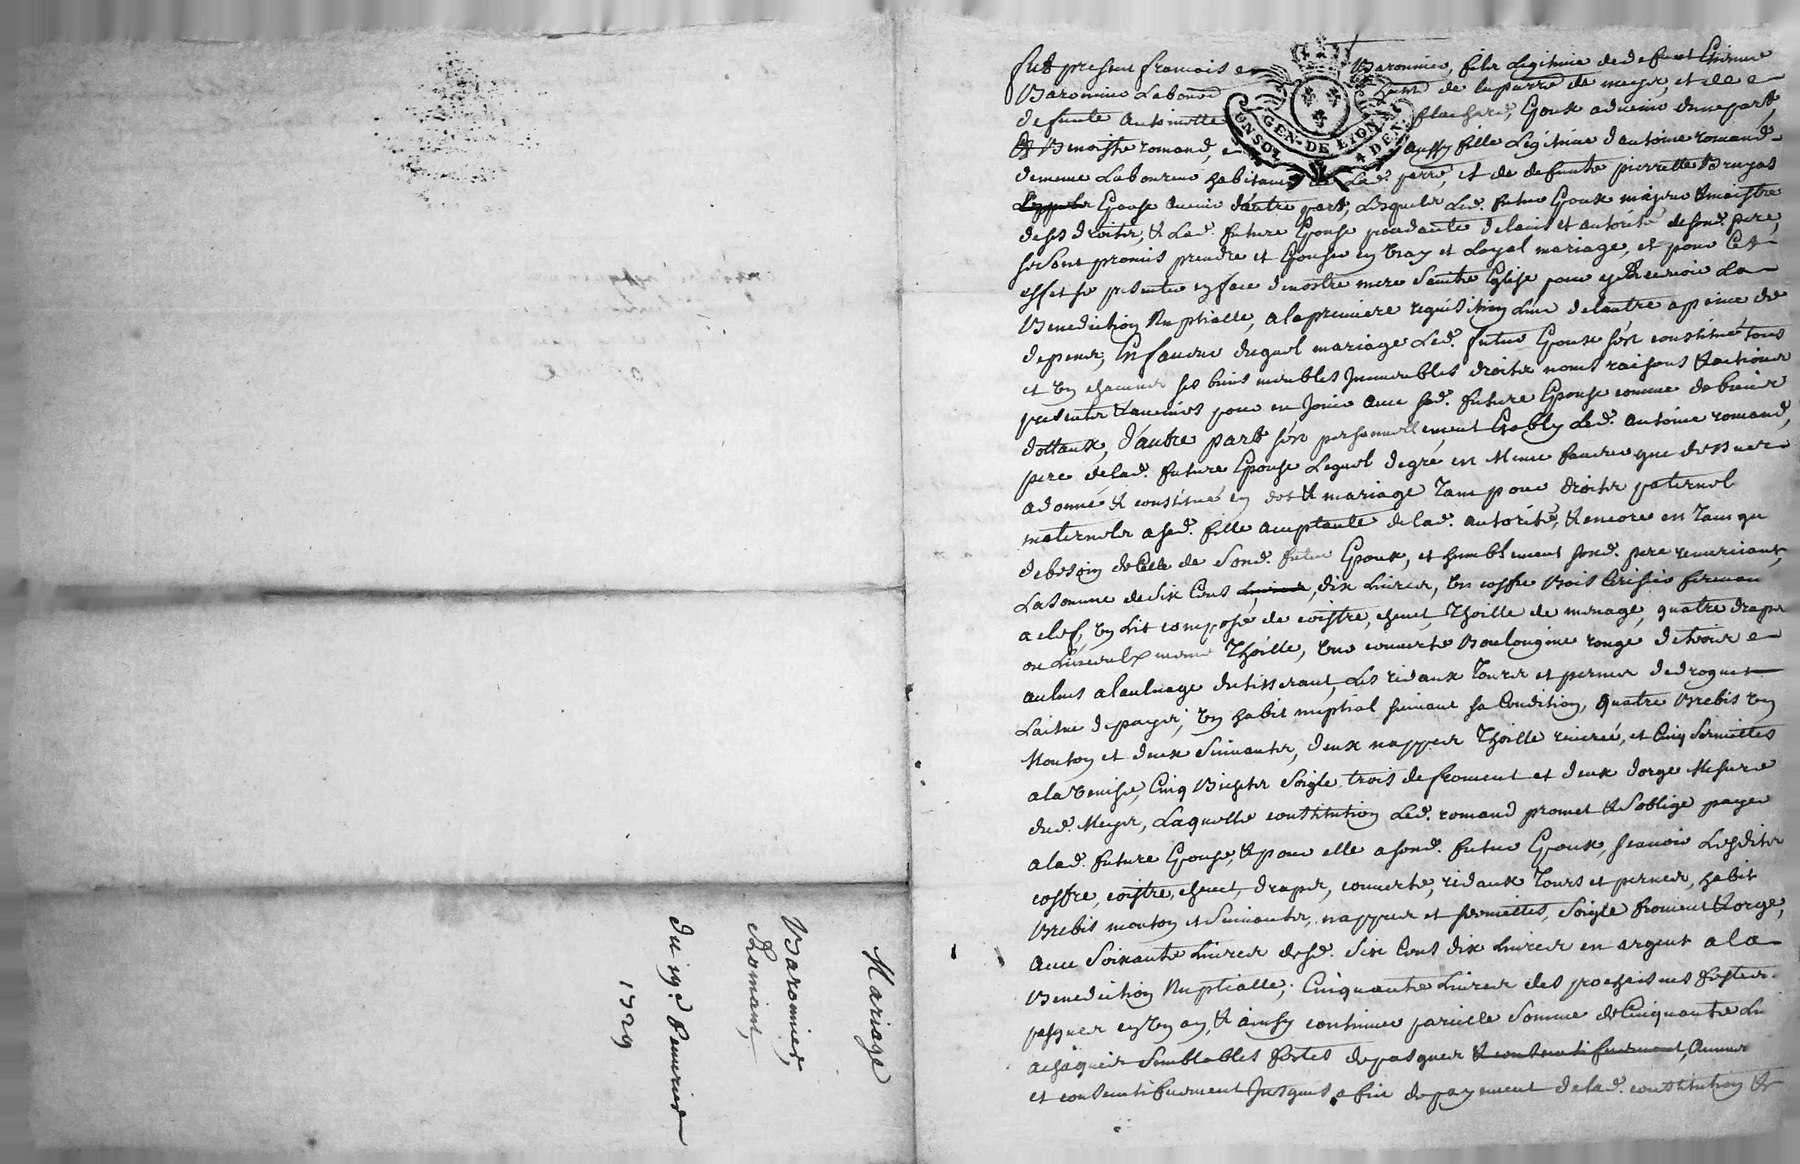 Mariage
Baronnier,
Romant,
du 19e feuvrier
1729
fut present francois Baronnier, filz Legitime de defunt Estienne
Baronnier Laboureur de la parre de meys, et de
defunte Antoinette flachard, Epoux advenir dune part,
Et Benoiste romand, aussy fille Legitime d'antoine romand
UN SOL GEN. DE LION 4 DEN.
de meme Laboureur habitant de Lad. parre, et de defunte pierrette Bruyas
Epouse avenir d'autre part, Lesquels Led. futur Epoux majeur & maistre
de ses droits, & Lad. future Epouse procedante de lavis et autorité de sond. pere,
se sont promis prendre et Epouser en vray et Loyal mariage, et pour cet
effet se presenter en face de nostre mere Sainte Eglise pour y recevoir La
Benediction Nuptialle, a la premiere requisition Lun de lautre a peine de
depens, En faveur duquel mariage Led. futur Epoux s'est constitué tous
et un chacuns ses biens meubles Immeubles droits noms raisons & actions
presents & avenirs pour en Jouir avec sad. future Epouse comme de biens
dottaux, d'autre part s'est personnellement Etably Led. Antoine romand,
pere de lad. future Epouse Lequel de gré en Meme faveur que dessus
a donné & constitué en dot & mariage Tant pour droits paternels
maternels a sad. fille acceptante de lad. autorité, & encore en Tant que
de besoin de Celle de Sond. futur Epoux, et humblement sond. pere remerciant,
La Somme de Six Cens dix Livres, un coffre Bois Cerisier fermant
a clef, un Lit composé de coistre, chevet, Thoille de menage, quatre draps
ou Linceulx meme Thoille, une couverte Boulongine rouge de trois
aulnes a laulnage du tisserant, Les ridaux Tours et pernes de droguet
Laitue de payis, un habit nuptial suivant sa Condition, quatre Brebis un
Mouton et deux Suivantes, deux nappes Thoille, et Cinq Serviettes
a la Venise, Cinq Bichets Soigle trois de froment et deux dorge Mesure
dud. Meys, Laquelle constitution Led. romand promet & s'oblige payer
a lad. future Epouse, & pour elle a sond. futur Epoux, scavoir Lesdits
coffre, coistre, chevet, draps, couverte, ridaux Tours et pernes, habit
Brebis mouton et Suivantes, nappes et serviettes, Soigle froment & orge,
avec Soixante Livres desd. Six Cens dix Livres en argent a la
Benediction Nuptialle; Cinquante Livres des prochaines festes
pasques en un an, & ainsy continuer pareille Somme de Cinquante Li
a chaques Semblables festes de pasques & consecutifvement, Annuel
et consecutifvement Jusques a fin de payement de lad. constitution &